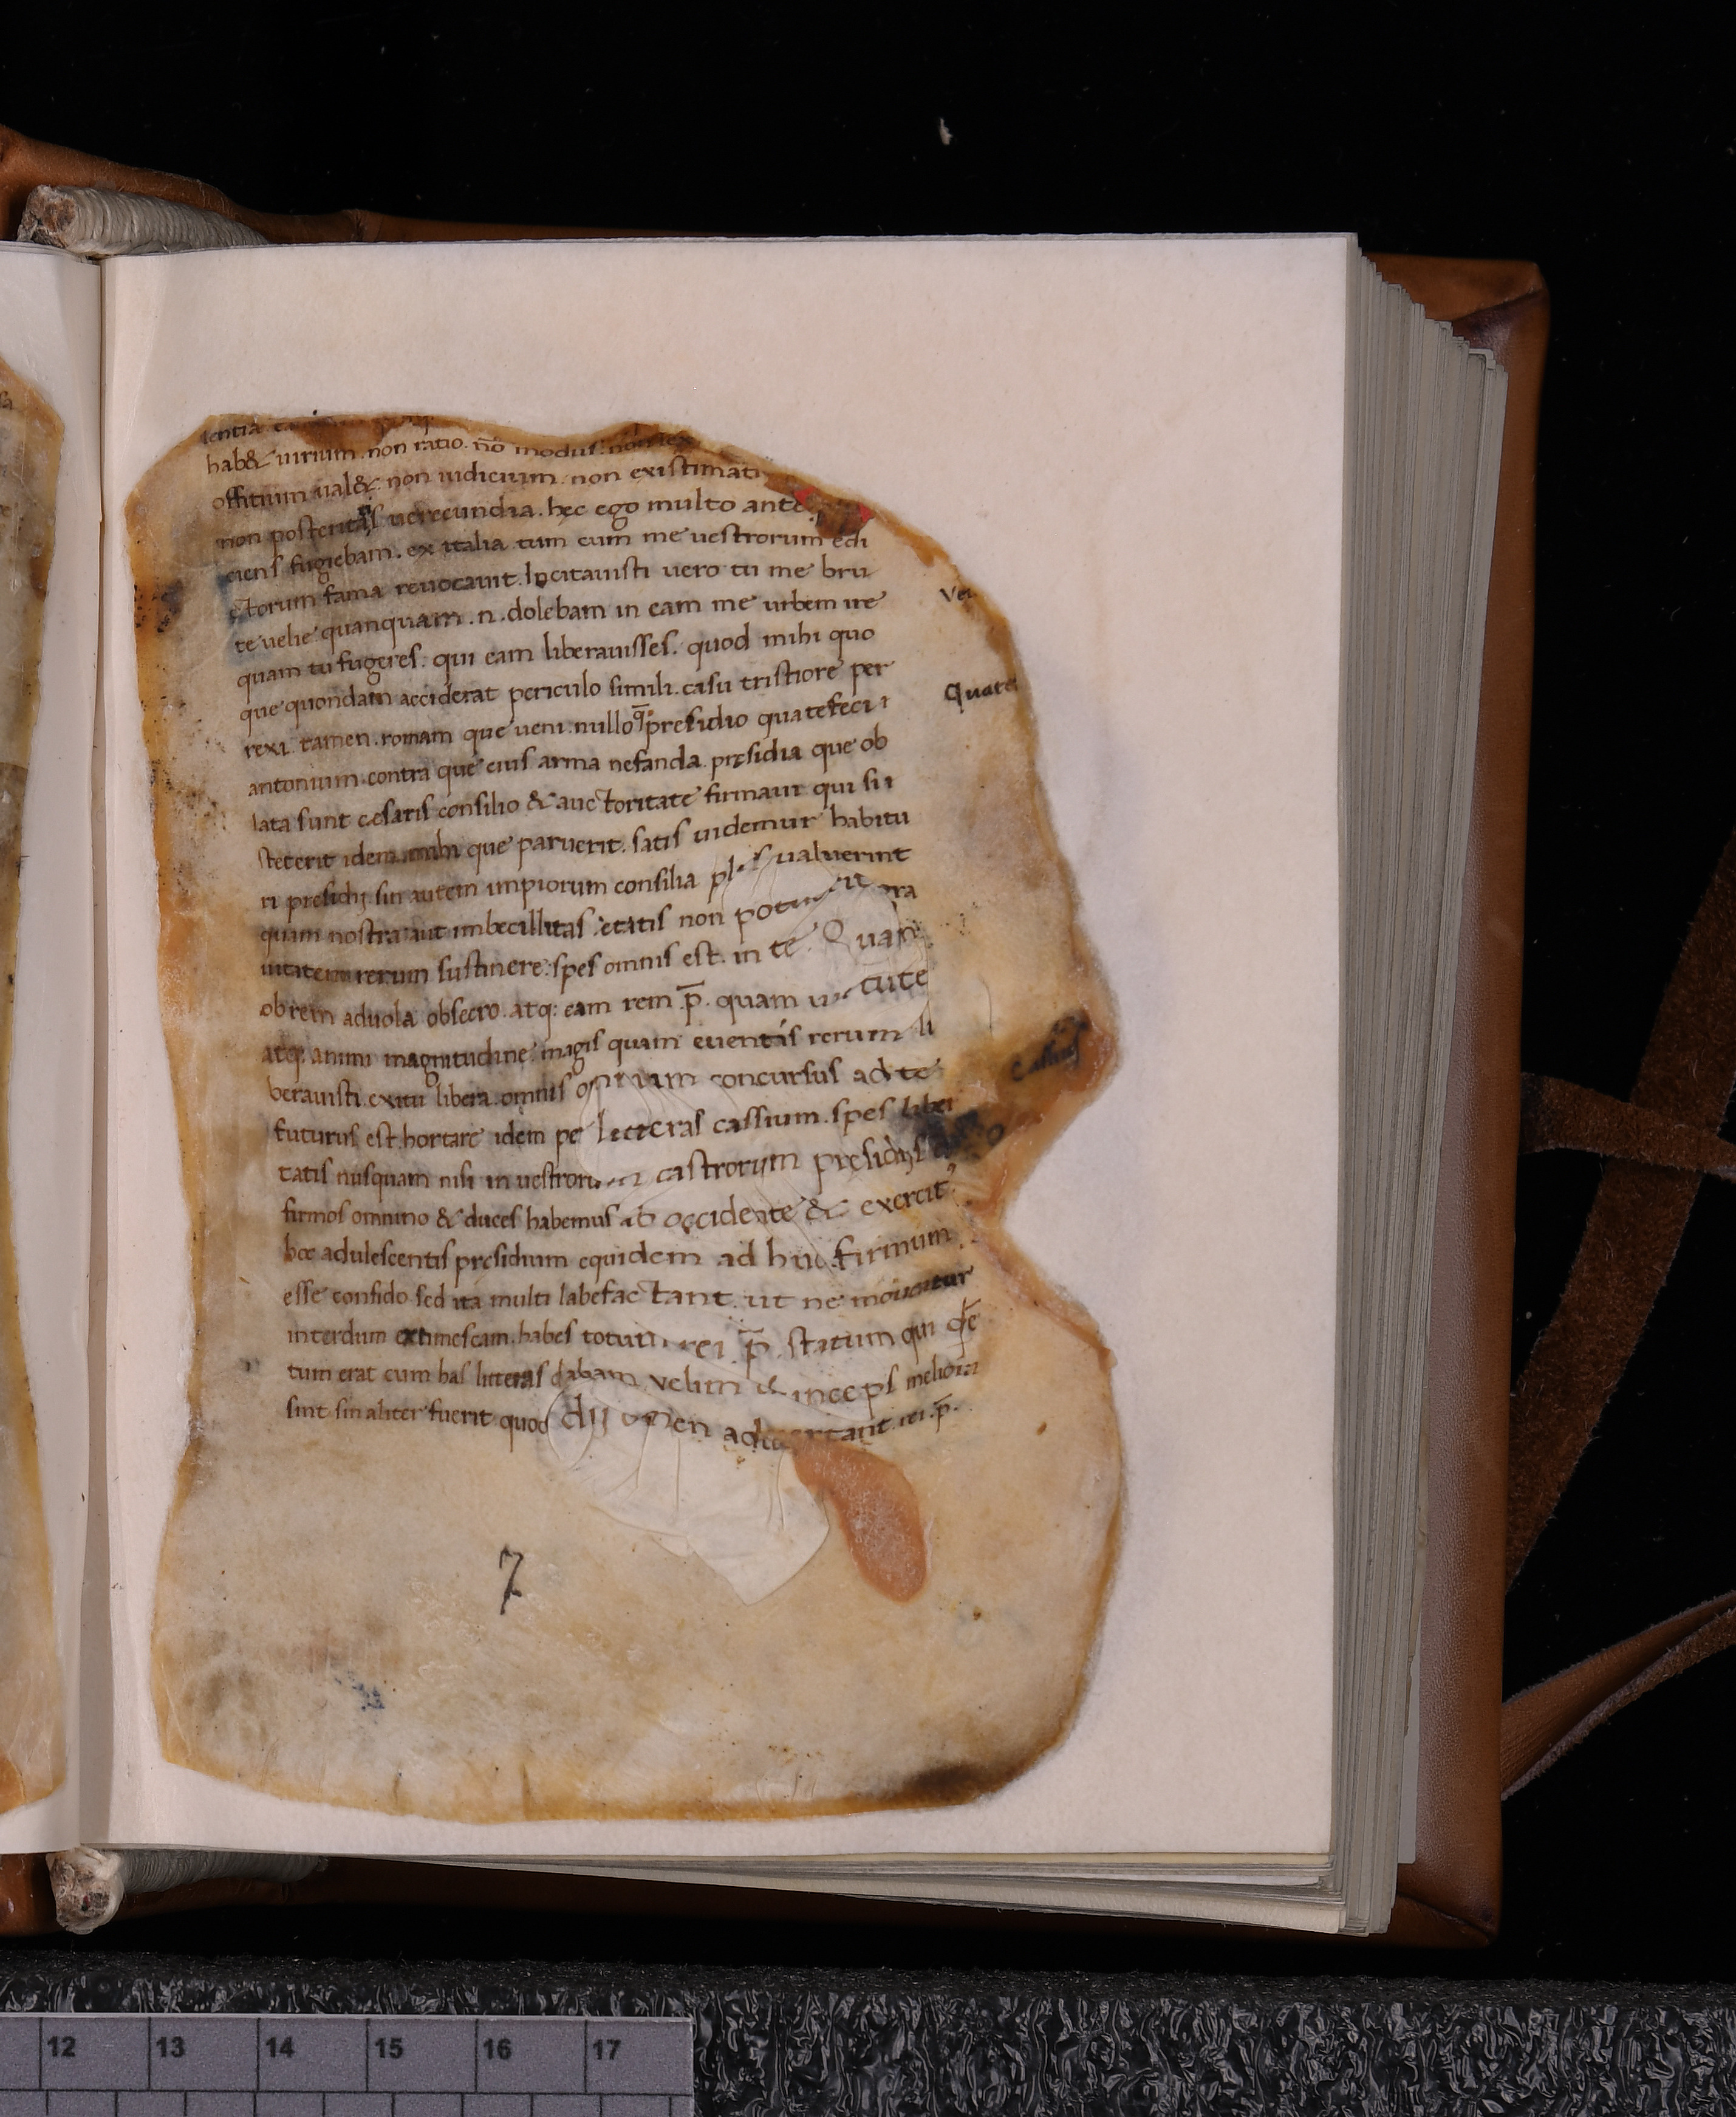 lentia
hab& uirium. non ratio. nō modus. non lex
offitium ual&. non iudicium. non existimati
non posteritatis uerecundia. hęc ego multo ante
ciens fugiebam. ex italia tum cum me uestrorum edi
ctorum fama reuocauit. Incitauisti uero tu me bru
te uelie quanquam .n. dolebam in eam me urbem ire
quam tu fugeres. qui eam liberauisses. quod mihi quo
que quondam acciderat periculo simili. casu tristiore per
rexi tamen. romam que ueni nullo q̄ presidio quatefeci
antonium contra que eius arma nefanda presidia que ob
lata sunt cesaris consilio & auctoritate firmaui qui si
steterit idem mihi que paruerit. satis uidemur habitu
ri presidij sin autem impiorum consilia plus ualuerint
quam nostra aut imbecillitas etatis non potuerit gra
uitatem rerum sustinere: spes omnis est. in te. Quam
obrem aduola obsecro. atq: eam rem .p̄. quam uirtute
atq: animi magnitudine magis quam euentis rerum li
berauisti exitu libera. omnis omnium concursus ad te
futurus est. hortare idem per litteras cassium. spes liber
tatis nusquam nisi in uestrorum castrorum pręsidijs
firmos omnino & duces habemus ab occidente & exercit'
hoc adulescentis pręsidium equidem ad huc firmum
esse confido sed ita multi labefactant. ut ne moueatur
interdum extimescam. habes totum rei .p̄. statum qui
tum erat cum has litteras dabam. uelim inceps meliora
sint sin aliter fuerit quod dij omen aduertant. rei .p̄.
Quate
Cassius
7
12 13 14 15 16 17